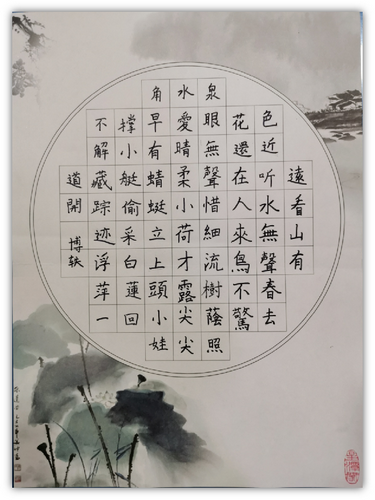 遠看山有
色近听水無聲春去
花還在人來鳥不驚
泉眼無聲惜細流樹蔭照
水愛晴柔小荷才露尖尖
角早有蜻蜓立上頭小娃
撑小艇偷采白蓮回
不解藏踪迹浮萍一
道開 博轶